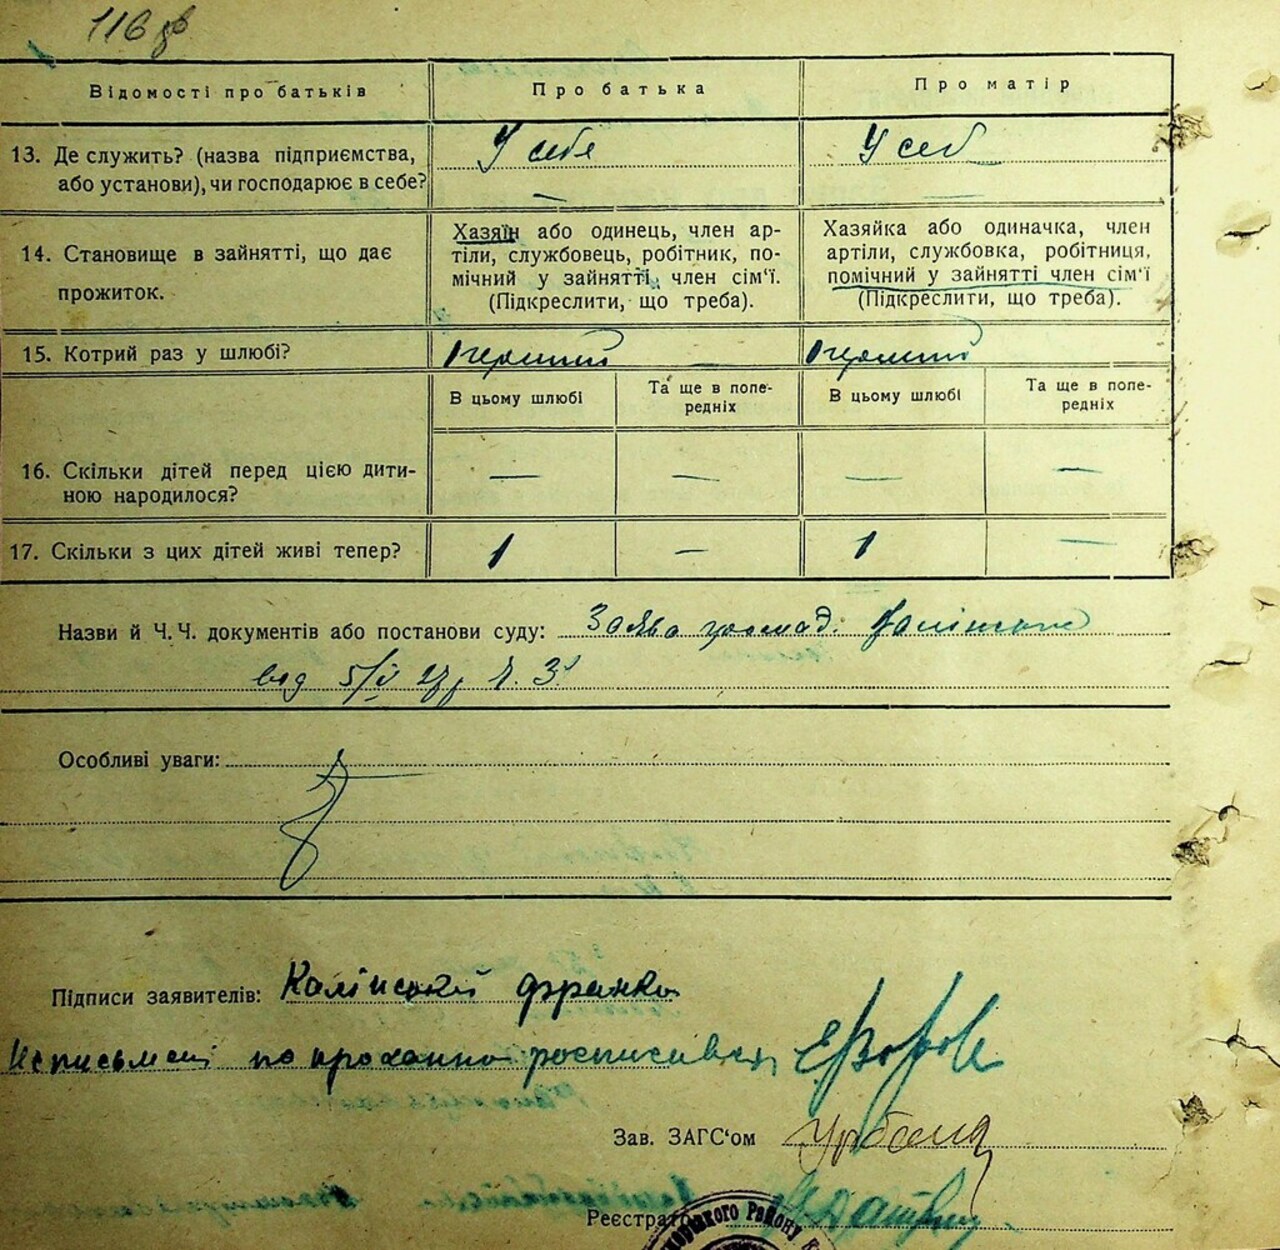 116 зв
Відомості про батьків
Про батька
Про матір
13. Де служить? (назва підприємства,
або установи), чи господарює в себе?
У себе
У себ
14. Становище в зайнятті, що дає
прожиток.
Хазяїн або одинець, член ар-
тіли, службовець, робітник, по-
мічний у зайнятті, член сім'ї.
(Підкреслити, що треба).
Хазяйка або одиначка, член
артіли, службовка, робітниця,
помічний у зайнятті член сім'ї
(Підкреслити, що треба).
15. Котрий раз у шлюбі?
1 перший
1 перший
В цьому шлюбі
Та ще в попе-
редніх
В цьому шлюбі
Та ще в попе-
редніх
16. Скільки дітей перед цією дити-
ною народилося?
— — — —
17. Скільки з цих дітей живі тепер?
1 — 1 —
Назви й Ч. Ч. документів або постанови суду: Заява громад.
від 5/V 27 р Ч. 3
Особливі уваги:
Підписи заявителів: Калінський Франко
Неписьмені по проханню росписався
Зав. ЗАГС'ом Урбан
Реєстратор
Району